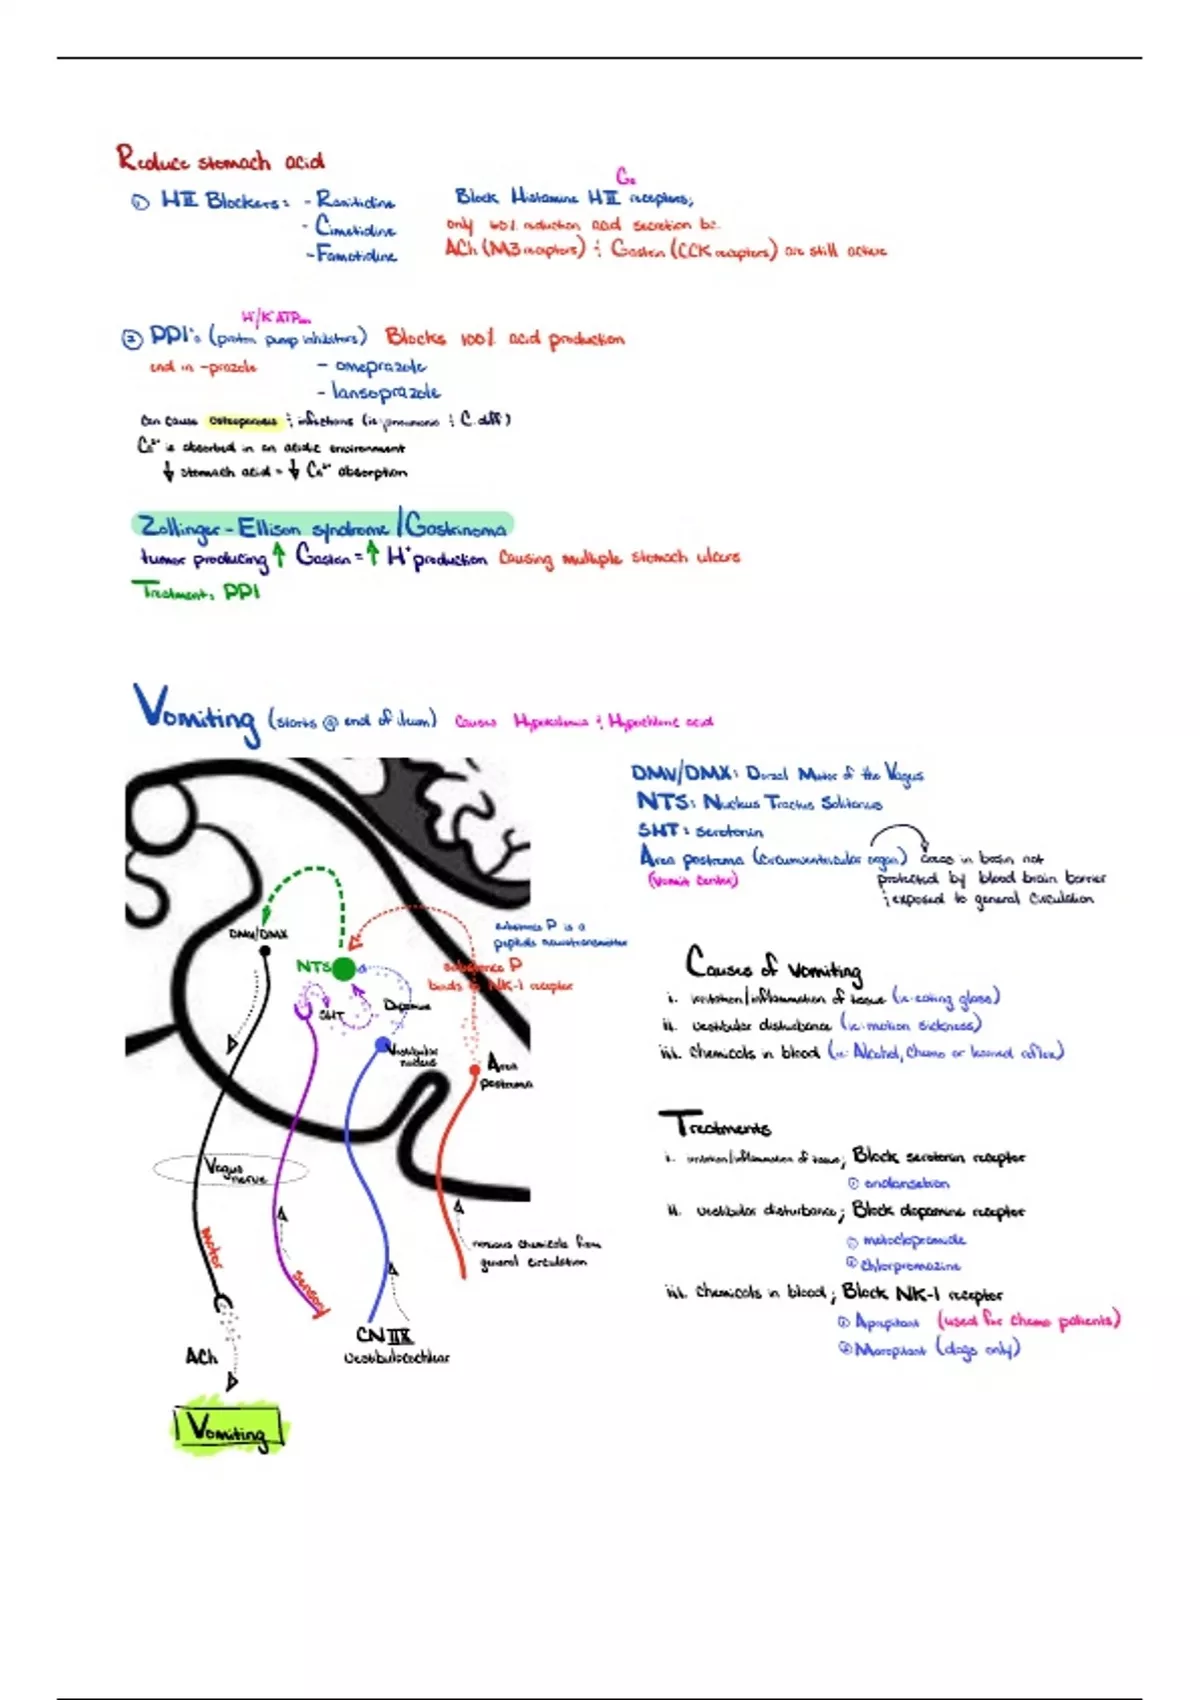 Reduce stomach acid
① HII Blockers: - Ranitidine
- Cimetidine
- Famotidine
Gs
Block Histamine HII receptors;
only 60% reduction acid secretion bc
ACh (M3 receptors) & Gastrin (CCK receptors) are still active
H⁺/K⁺ATPase
② PPI's (proton pump inhibitors) Blocks 100% acid production
end in -prazole - omeprazole
- lansoprazole
can cause osteoporosis & infections (ie: pneumonia & C. diff)
Ca²⁺ is absorbed in an acidic environment
↓ stomach acid = ↓ Ca²⁺ absorption
Zollinger-Ellison syndrome/Gastrinoma
tumor producing ↑ Gastrin = ↑ H⁺ production causing multiple stomach ulcers
Treatment: PPI
Vomiting (starts @ end of ileum) causes Hypokalemia &
DMV/DMX: Dorsal Motor of the Vagus
NTS: Nucleus Tractus Solitarius
5HT: serotonin
Area postrema (circumventricular organ) areas in brain not
protected by blood brain barrier
& exposed to general circulation
(vomit center)
DMV/DMX
NTS
5HT
Dopamine
substance P is a
peptide neurotransmitter
substance P
binds to NK-1 receptor
Vestibular
nucleus
Area
postrema
Vagus
nerve
motor
sensory
noxious chemicals from
general circulation
CN IIX
vestibulocochlear
ACh
Vomiting
Causes of vomiting
i. irritation/inflammation of tissue (ie: eating glass)
ii. vestibular disturbance (ie: motion sickness)
iii. chemicals in blood (ie: Alcohol, chemo or learned reflex)
Treatments
i. irritation/inflammation of tissue; Block serotonin receptor
① ondansetron
ii. vestibular disturbance; Block dopamine receptor
① metoclopramide
② chlorpromazine
iii. chemicals in blood; Block NK-1 receptor
① Aprepitant (used for chemo patients)
② Maropitant (dogs only)